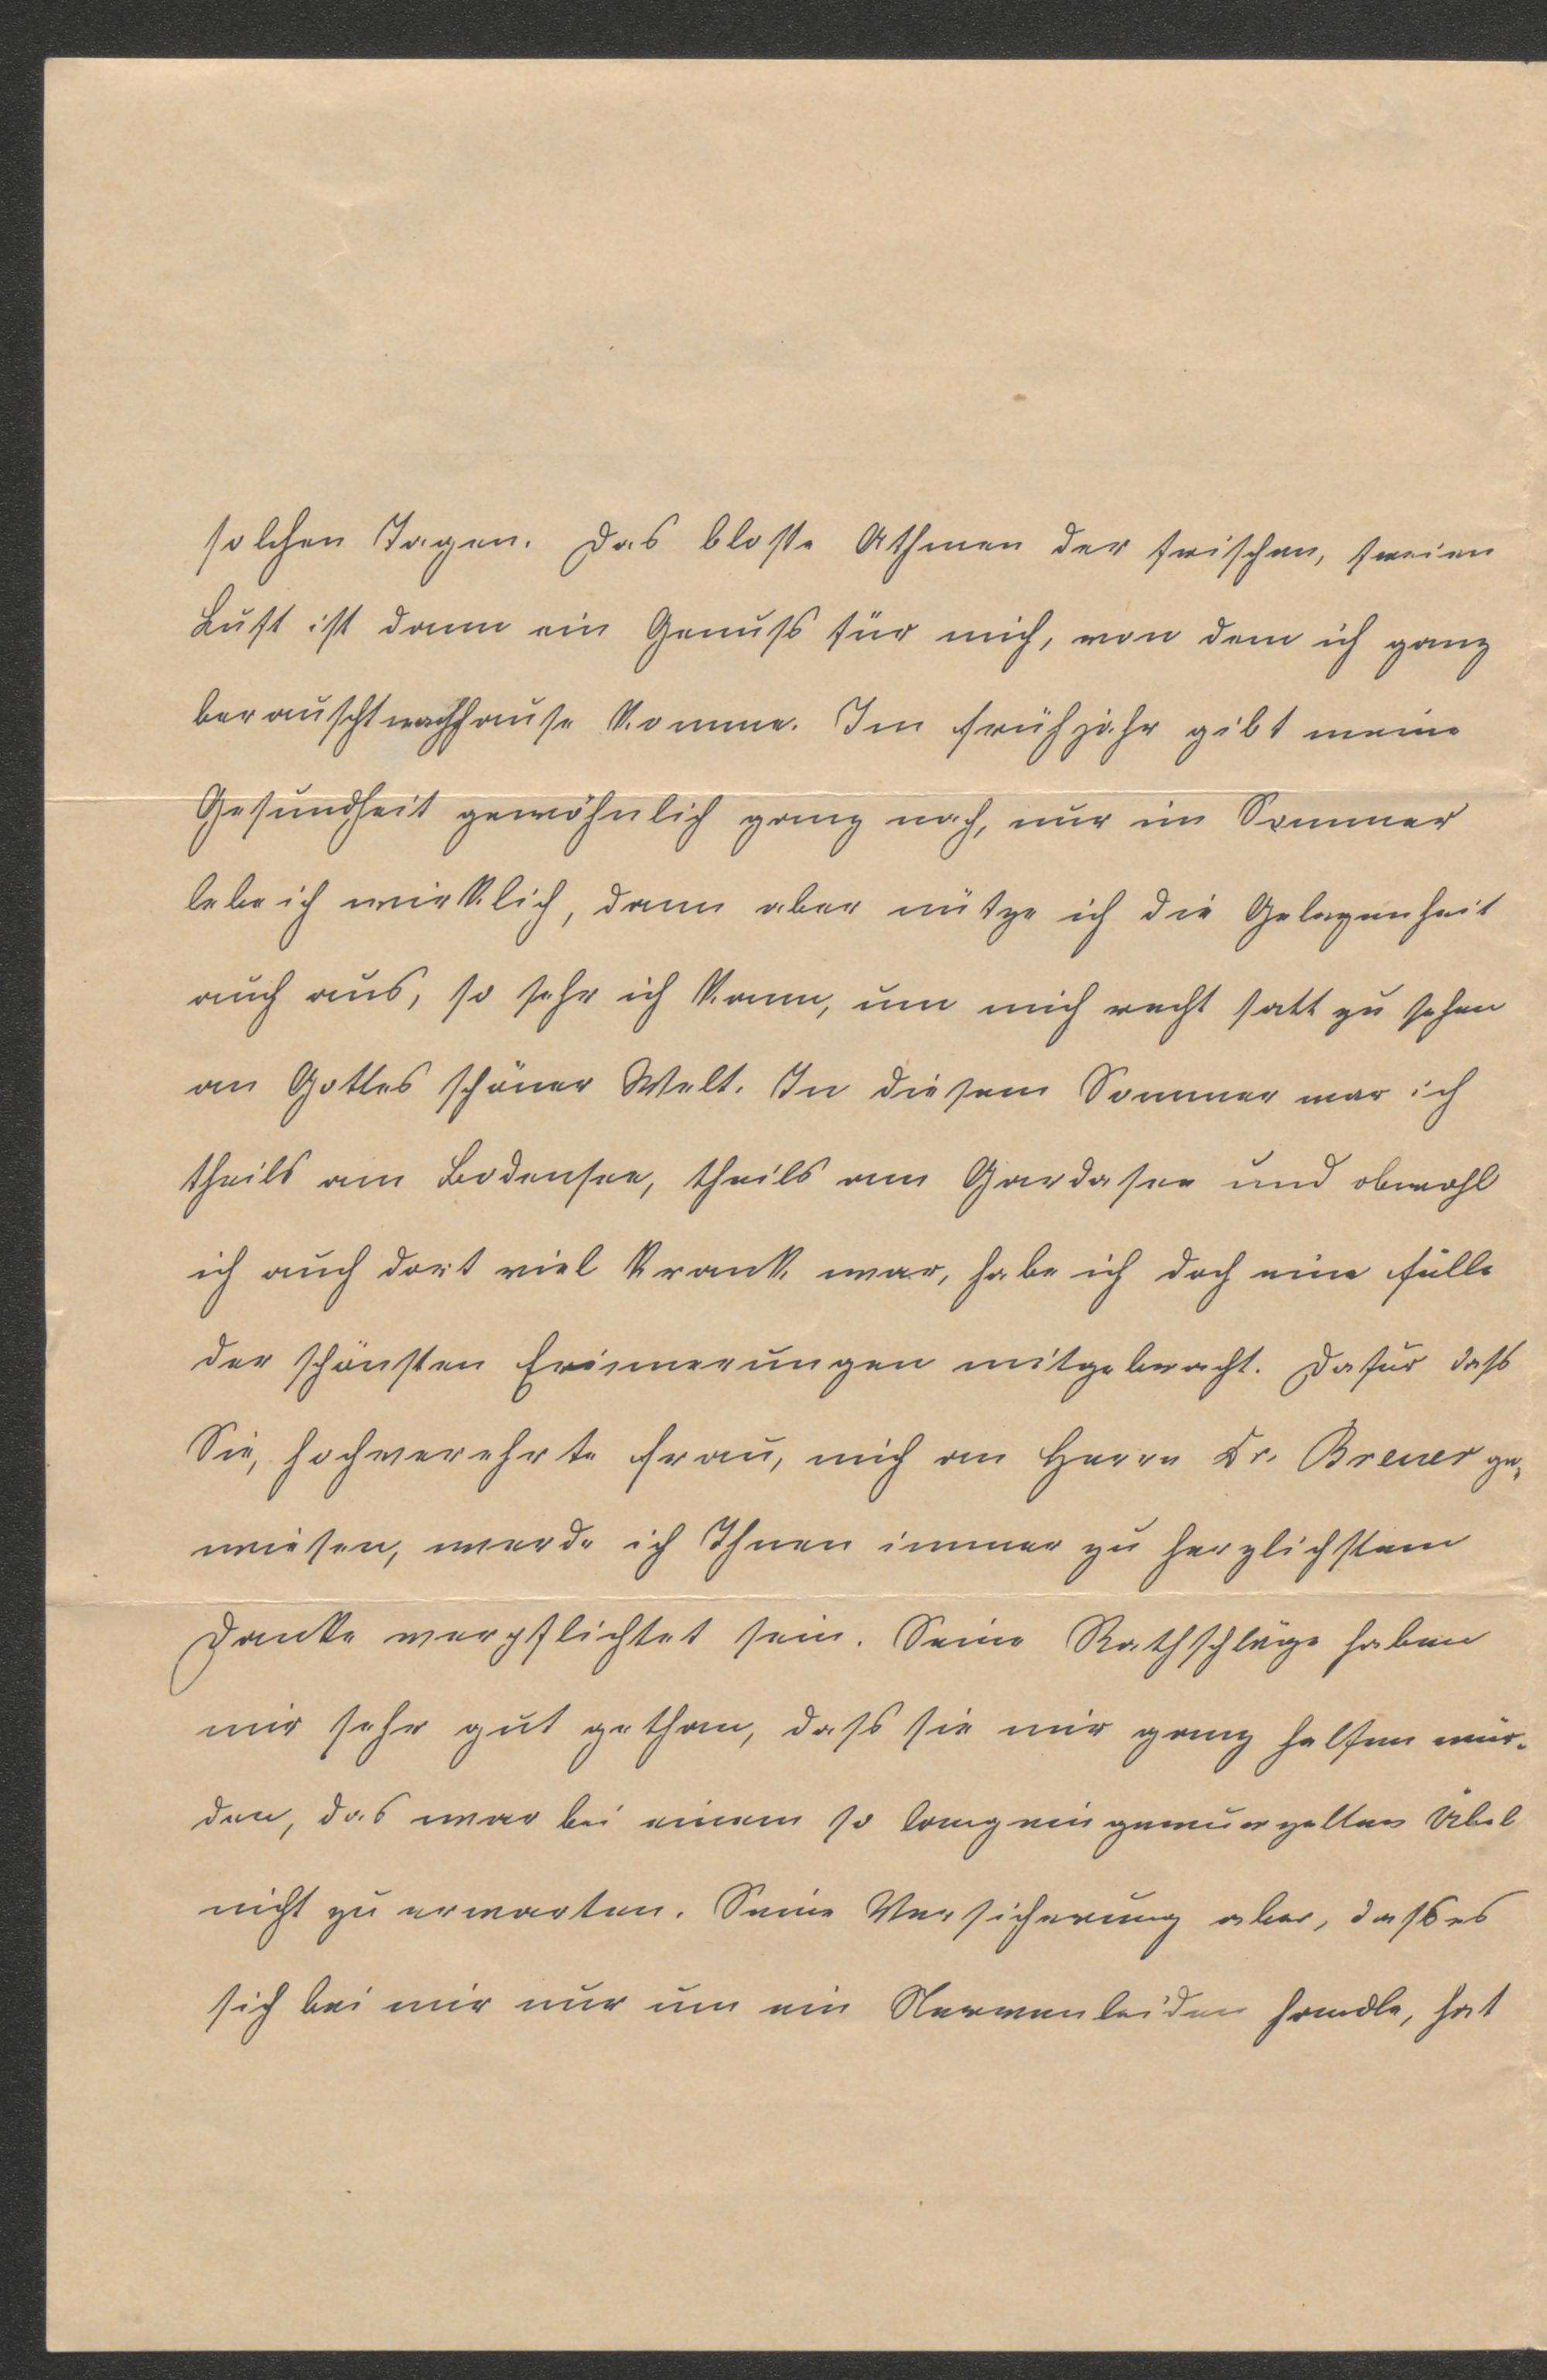 solchen Tagen. Das blosse Athmen der frischen, freien
Luft ist dann ein Genuss für mich, von dem ich ganz
berauscht nachhause komme. Im Frühjahr gibt meine
Gesundheit gewöhnlich ganz nach, nur im Sommer
lebe ich wirklich, dann aber nütze ich die Gelegenheit
auch aus, so sehr ich kann, um mich recht satt zu sehen
an Gottes schöner Welt. In diesem Sommer war ich
theils am Bodensee, theils am Gardasee und obwohl
ich auch dort viel krank war, habe ich doch eine Fülle
der schönsten Erinnerungen mitgebracht. Dafür dass
Sie, hochverehrte Frau, mich an Herrn Dr. Breuer ge-
wiesen, werde ich Ihnen immer zu herzlichstem
Danke verpflichtet sein. Seine Rathschläge haben
mir sehr gut gethan, dass sie mir ganz helfen wür-
den, das war bei einem so lang eingewurzelten Übel
nicht zu erwarten. Seine Versicherung aber, dass es
sich bei mir nur um ein Nervenleiden handle, hat